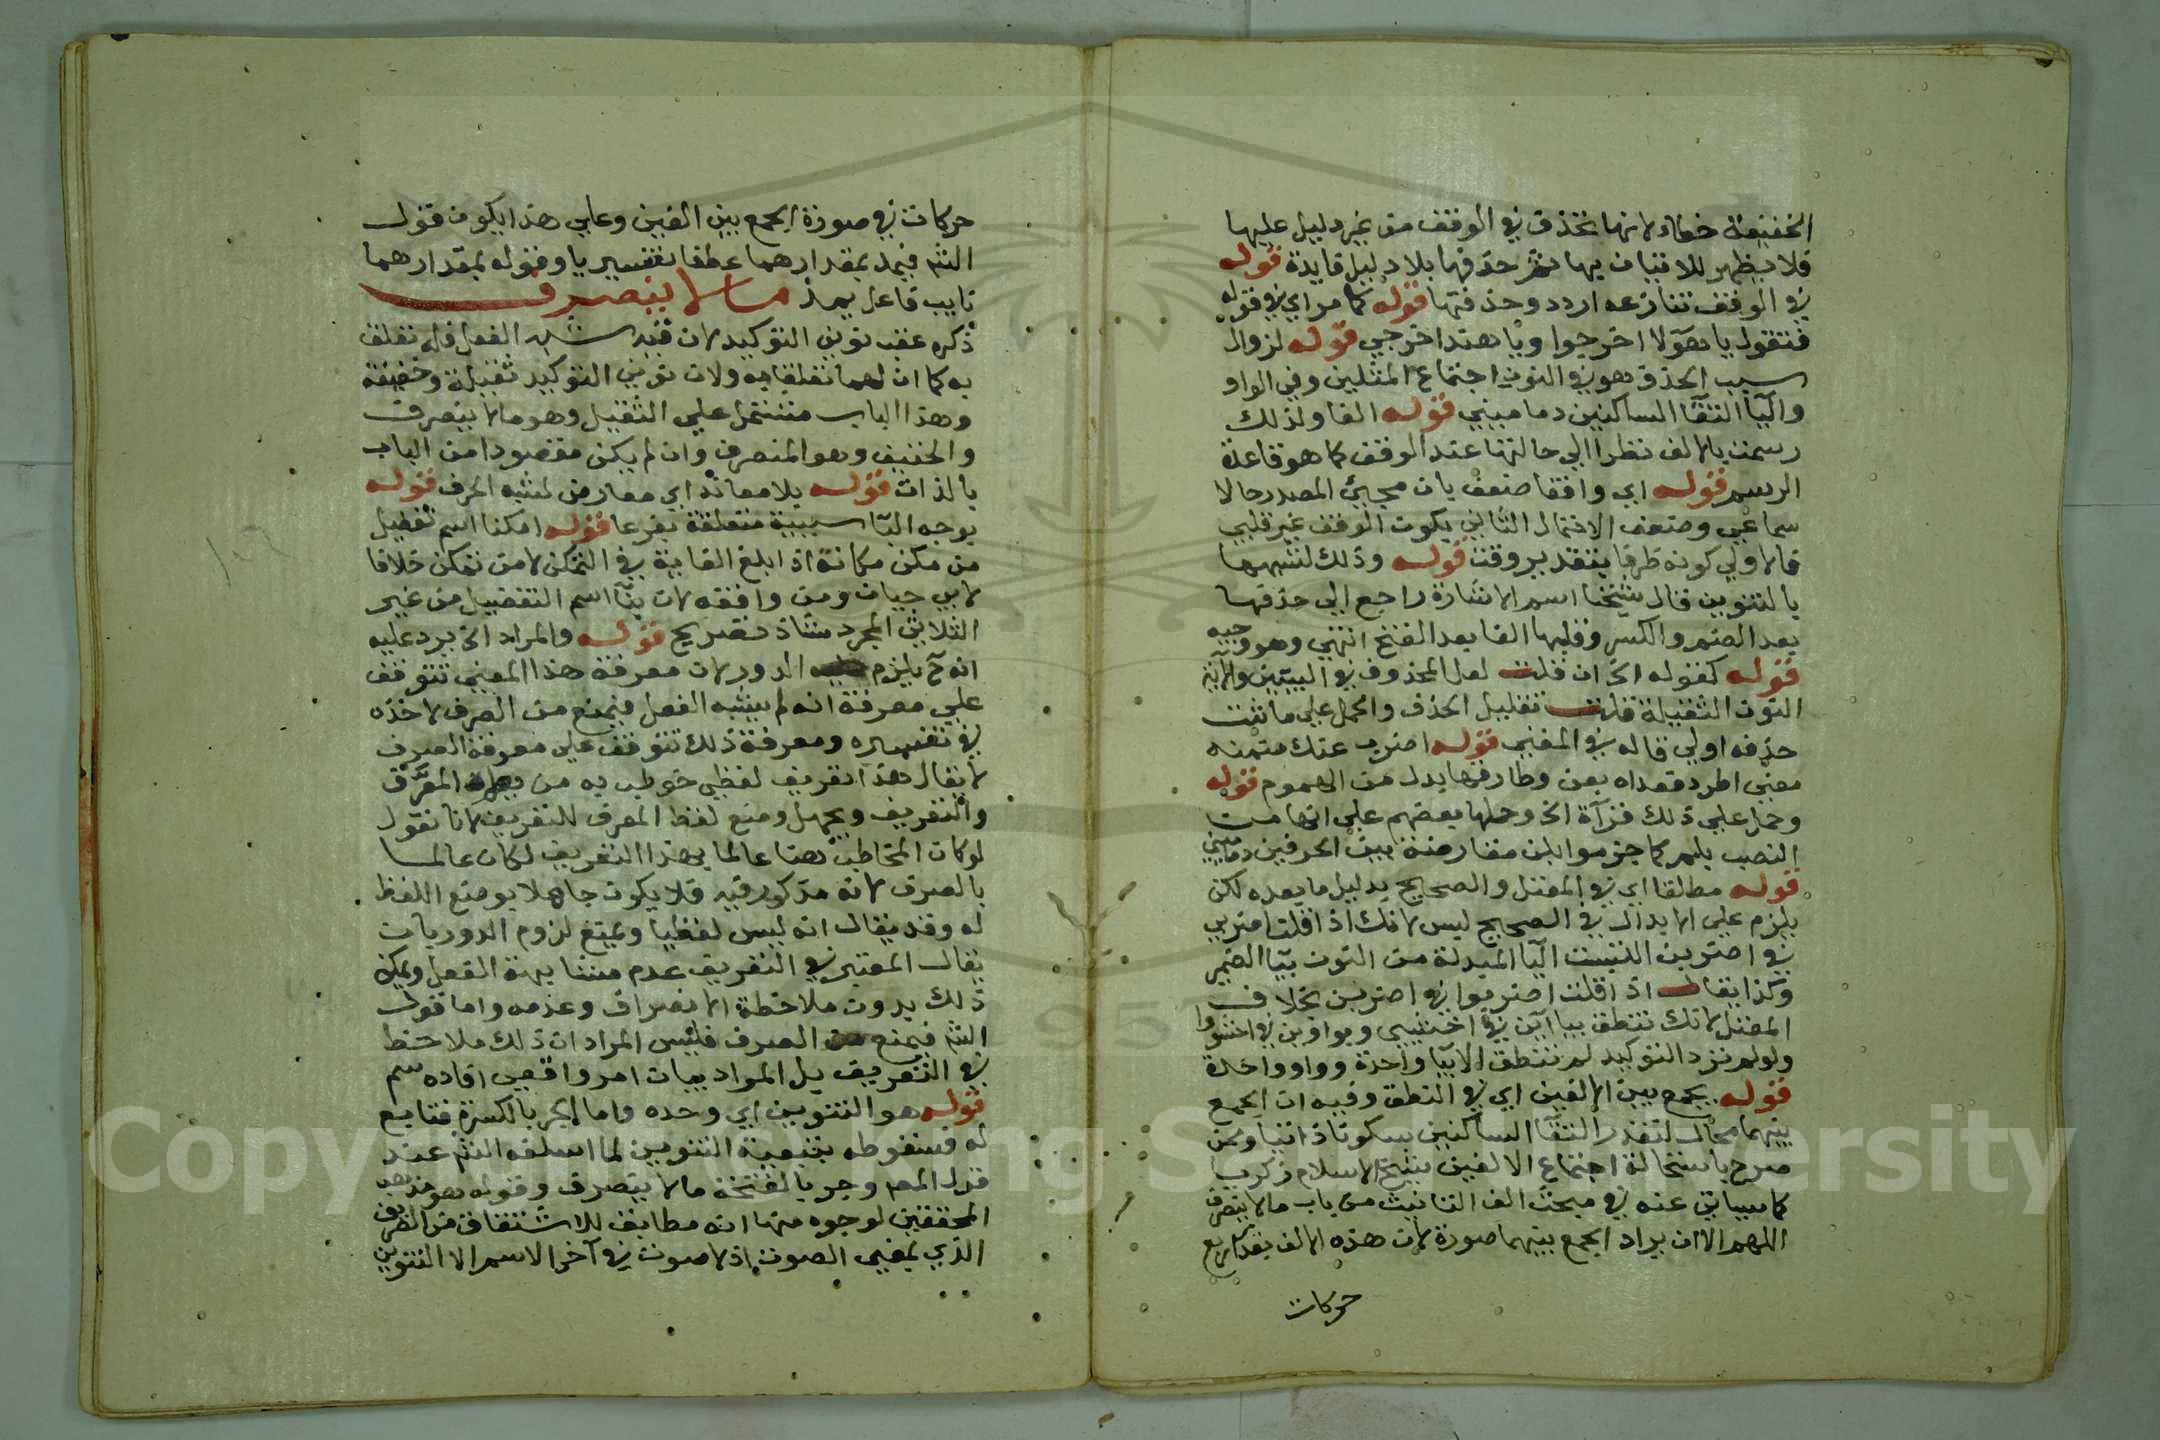 الخفيفة خطاء لانها تحذف في الوقف من غير دليل عليها
فلا يظهر للاتيان بها ثم حذفها بلا دليل فايدة قوله
في الوقف تنازعه اردد وحذفتها قوله كما مر اي في قوله
فتقول يا هؤلا اخرجوا ويا هند اخرجي قوله لزوال
سبب الحذف هو في النون اجتماع المثلين وفي الواو
واليا التقا الساكنين دماميني قوله الفا ولذلك
رسمت بالالف نظرا الي حالتها عند الوقف كما هو قاعدة
الرسم قوله اي واقفا ضعف بان مجيئ المصدر حالا
سماعي وضعف الاحتمال الثاني بكون الوقف غير قلبي
فالاولي كونه ظرفا بتقدير وقت قوله وذلك لشبهها
بالتنوين قال شيخنا اسم الاشارة راجع الي حذفها
بعد الضم والكسر وقلبها الفا بعد الفتح انتهي وهو وجيه
قوله كقوله الخ ان قلت لعل المحذوف في البيتين والاية
النون الثقيلة قلت تقليل الحذف والحمل علي ما ثبت
حذفه اولي قاله في المغني قوله اضرب عنك ضمنه
معني اطرد فعداه بعن وطارقها بدل من الهموم قوله
وحمل علي ذلك قرآة الخ وحملها بعضهم علي انها من
النصب بلم كما جزموا بلن مقارضة بين الحرفين دماميني
قوله مطلقا اي في المعتل والصحيح بدليل ما بعده لكن
يلزم علي الابدال في الصحيح ليس لانك اذا قلت اضربي
في اضربن التبست اليا المبدلة من النون بيا الضمير
وكذا يقال اذا قلت اضربوا في اضربن بخلاف
المعتل لانك تنطق بيااين في اخشيي وبواوين في اخشووا
ولو لم نزد التوكيد لم ننطق الا بيا واحدة وواو واحدة
قوله يجمع بين الالفين اي في النطق وفيه ان الجمع
بينهما محال لتعذر التقا الساكنين بسكون ذاتيا وممن
صرح باستحالة اجتماع الالفين شيخ الاسلام زكريا
كما سياتي عنه في مبحث الف التانيث من باب ما لا ينصرف
اللهم الا ان يراد الجمع بينهما صورة لان هذه الالف بقدر اربع
حركات
حركات في صورة الجمع بين الفين وعلي هذا يكون قول
الشم فيمد بمقدارهما عطفا تفسيريا وقوله بمقدارهما
نايب فاعل يمد ما لا ينصرف
ذكره عقب نوني التوكيد لان فيه شبه الفعل فله تعلق
به كما ان لهما تعلقا به ولان نوني التوكيد ثقيلة وخفيفة
وهذا الباب مشتمل علي الثقيل وهو ما لا ينصرف
والخفيف وهو المنصرف وان لم يكن مقصودا من الباب
بالذات قوله بلا معاند اي معارض لشبه الحرف قوله
بوجه البا سببية متعلقة بفرعا قوله امكنا اسم تفضيل
من مكن مكانة اذا بلغ الغاية في التمكن لا من تمكن خلافا
لابي حيان ومن وافقه لان بنآ اسم التفضيل من غير
الثلاثي المجرد شاذ تصريح قوله والمراد الخ يرد عليه
انه ح يلزم الدور لان معرفة هذا المعني تتوقف
علي معرفة انه لم يشبه الفعل فيمنع من الصرف لاخذه
في تفسيره ومعرفة ذلك تتوقف علي معرفة الصرف
لا يقال هذا تعريف لفظي خوطب به من المعرَّف
والتعريف ويجهل وضع لفظ المعرف للتعريف لانا نقول
لو كان المخاطب هنا عالما بهذا التعريف لكان عالما
بالصرف لانه مذكور فيه فلا يكون جاهلا بوضع اللفظ
له وقد يقال انه ليس لفظيا ويمنع لزوم الدور بان
يقال المعتبر في التعريف عدم مشابهة الفعل ويمكن
ذلك بدون ملاحظة الانصراف وعدمه واما قول
الشم فيمنع من الصرف فليس المراد ان ذلك ملاحظ
في التعريف بل المراد بيان امر واقعي افاده سم
قوله هو التنوين اي وحده واما الجر بالكسرة فتابع
له فسقوطه بتبعية التنوين لما اسلفه الشم عند
قول المصم وجر بالفتحة ما لا ينصرف وقوله هو مذهب
المحققين لوجوه منها انه مطابق للاشتقاق من الصريف
الذي بمعني الصوت اذ لا صوت في آخر الاسم الا التنوين